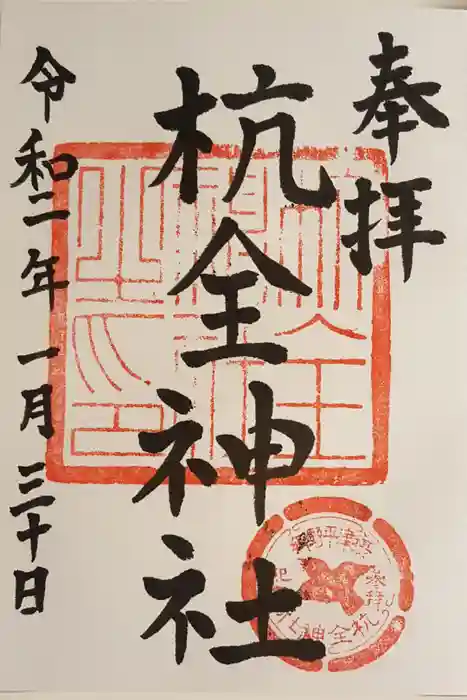 奉拝
杭全神社
令和二年一月三十日
参拝
杭全神社